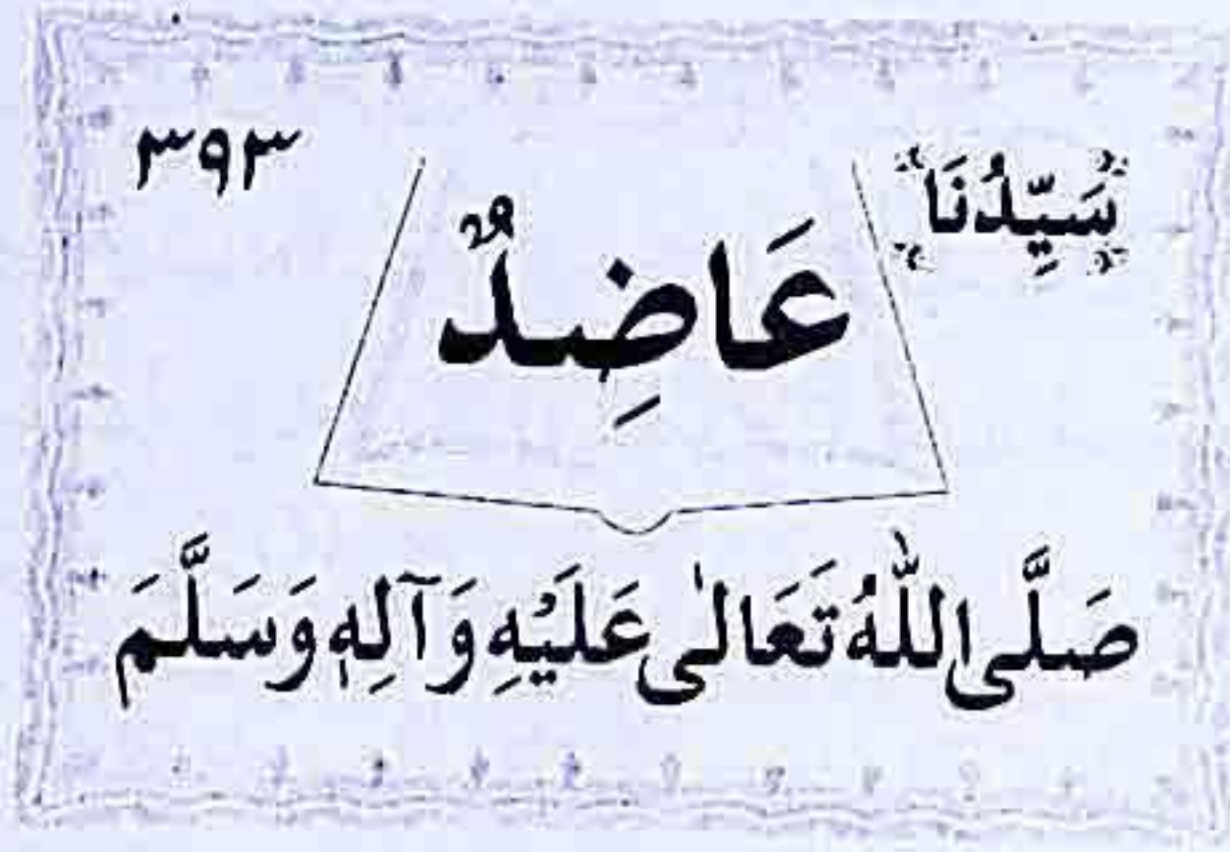 سَيِّدُنَا
٣٩٣
عَاضِدٌ
صَلَّى اللّٰهُ تَعَالٰى عَلَيْهِ وَآلِهٖ وَسَلَّمَ